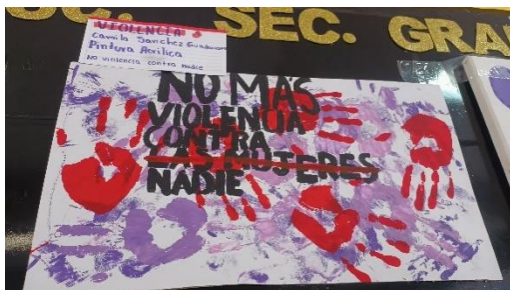 OC. SEC. GRA
VIOLENCIA
Camila Sanchez
Pintura Acrilica
No violencia contra nadie
NO MÁS
VIOLENCIA
CONTRA
LAS MUJERES
NADIE